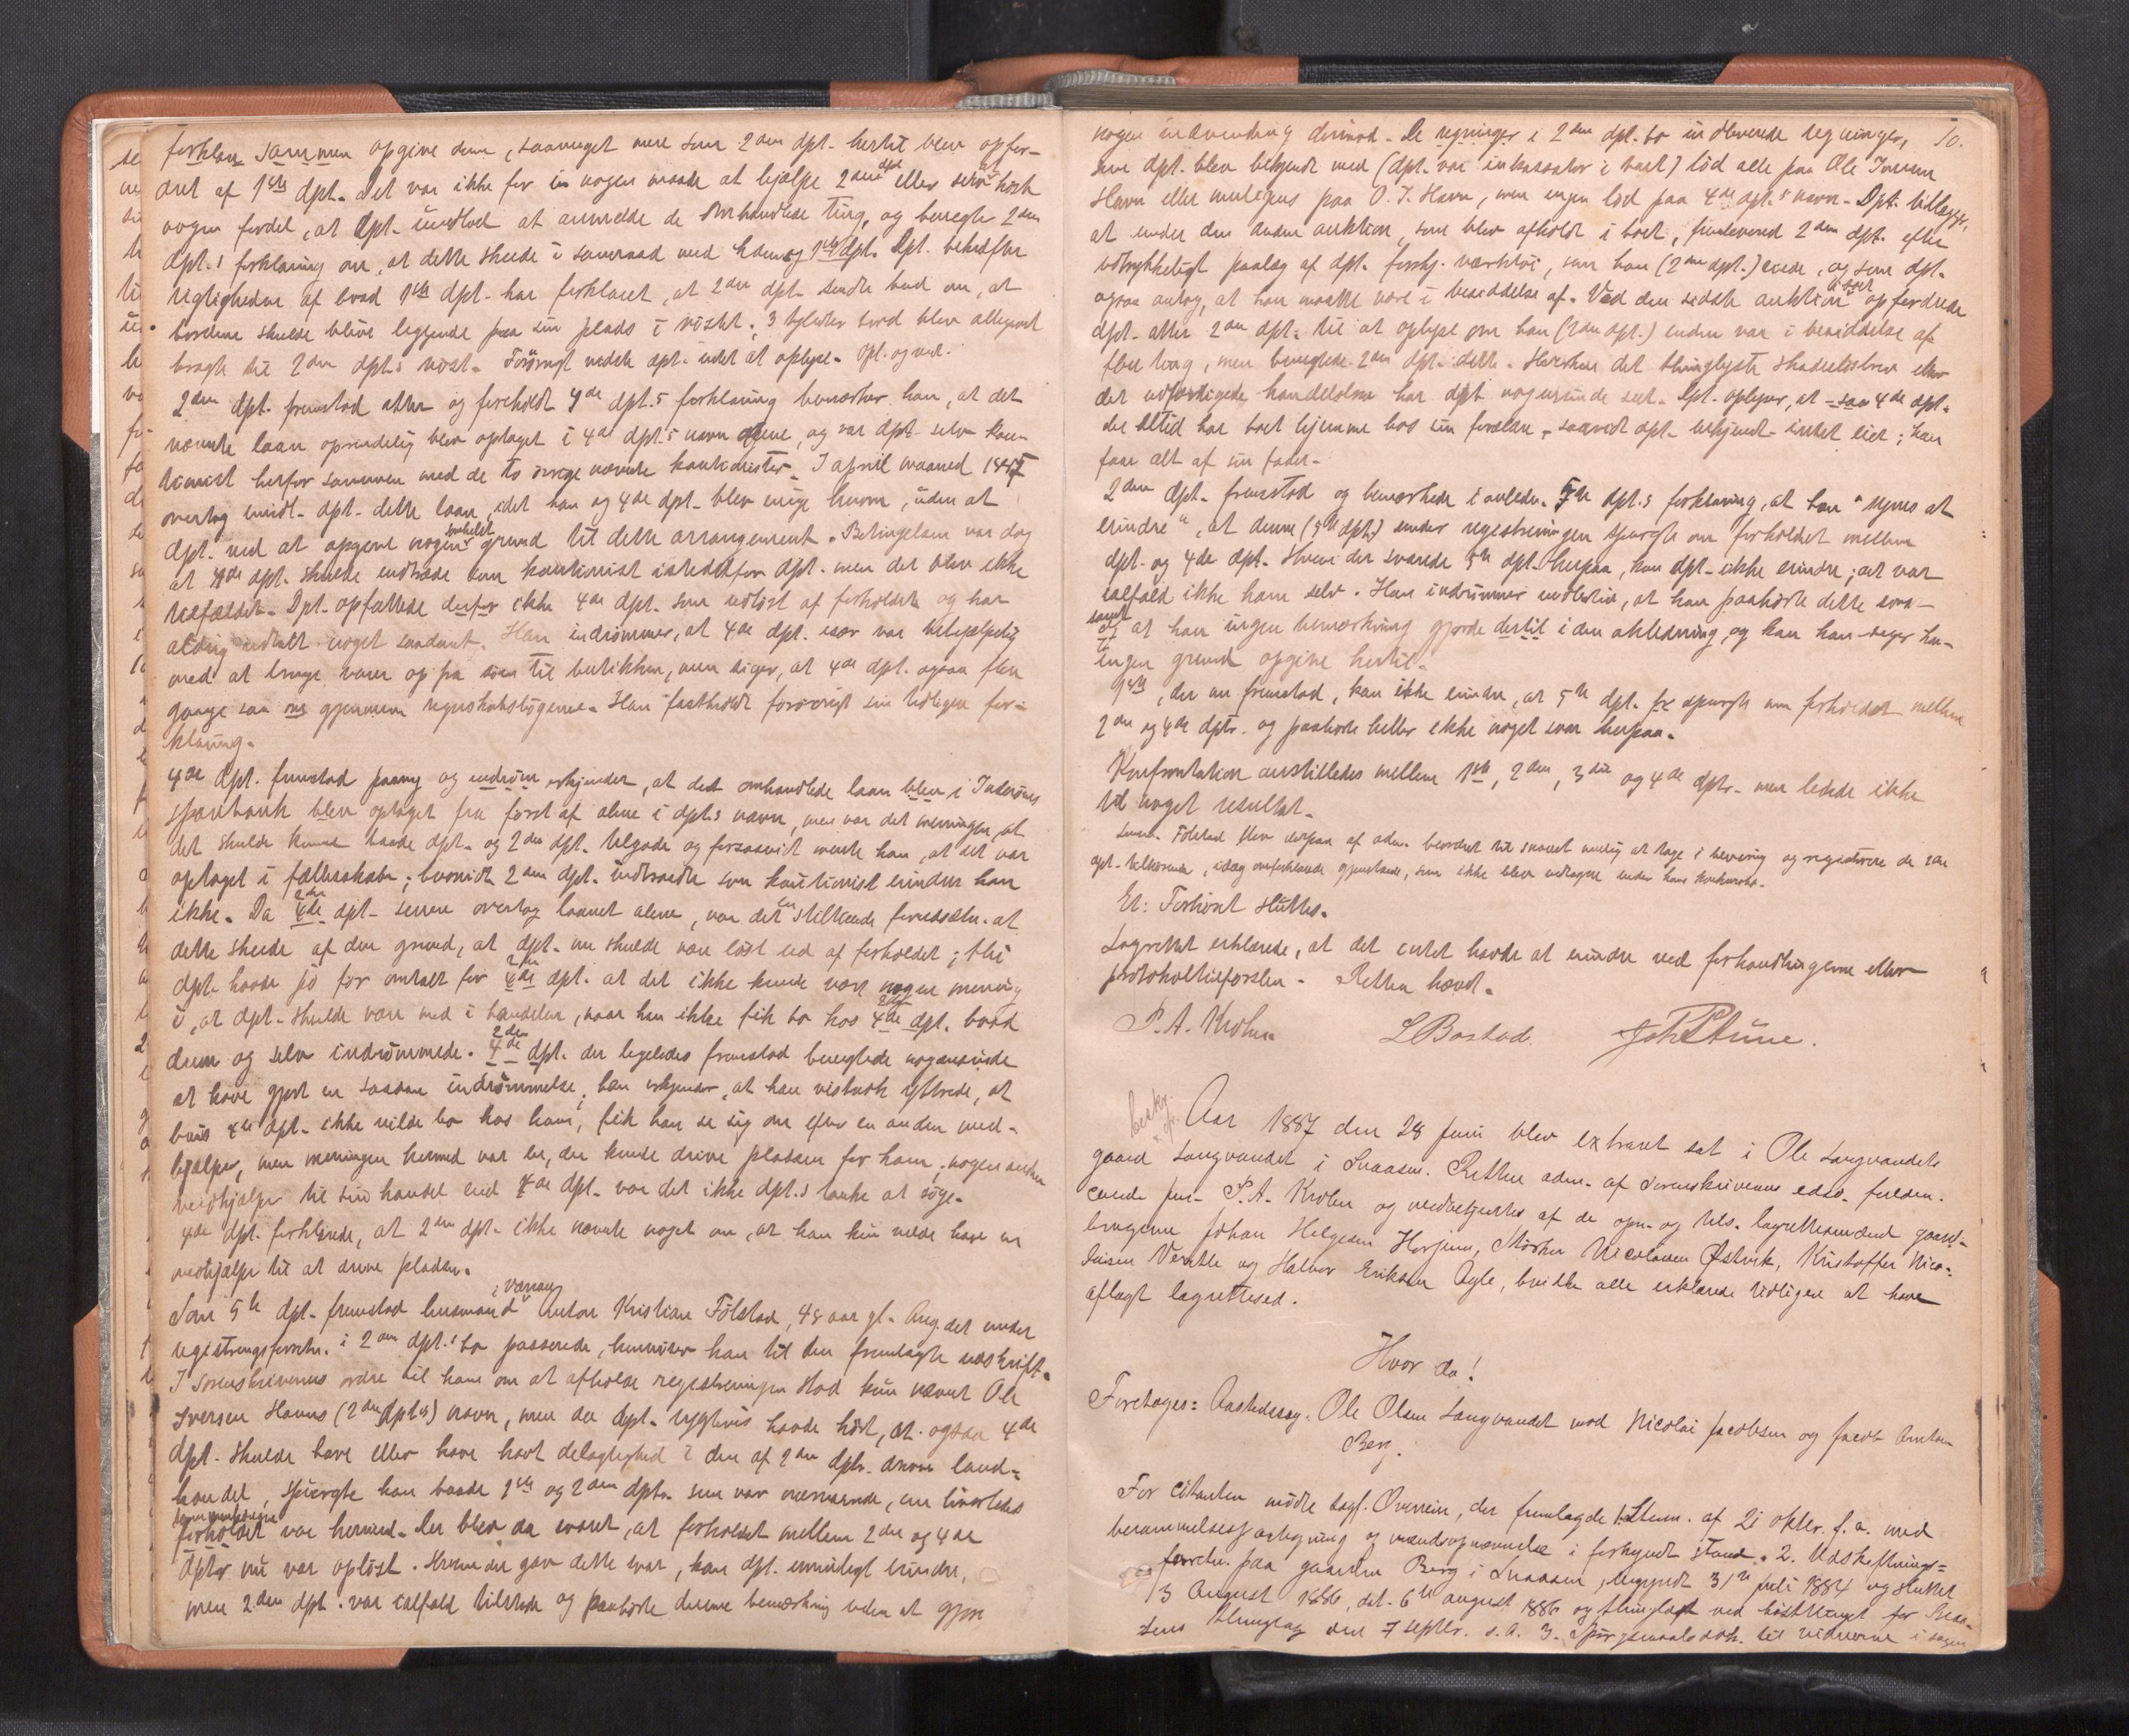 forklar sammen opgive denne, saameget mere som 2den dpt. hertil blev opfor-
dret af 1ste dpt. Det var ikke for in nogen maade at hjælpe 2den dpt eller
nogen fordel, at dpt. undlod at anmelde de omhandlede ting, og benegter 2den
dpt.s forklaring om, at dette skede i samraad med ham og 1ste dpt. Dpt. bekræfter
rigtigheden af hvad 1ste dpt. har forklaret, at 2den dpt. sendte bud om, at
bordene skulde blive liggende paa sin plads i nöstet; 3 tylvter bord blev allerede
bragte til 2den dpt.s nöst. Forövrigt vedste dpt. intet at oplyse. Opl. og ved.
2den dpt. fremstod atter og foreholdt 4de dpt.s forklaring bemærker han, at det
nævnte laan oprindelig blev optaget i 4de dpt.s navn alene, og var dpt. selv kau-
tionist herfor sammen med de to övrige nævnte kautionister. I april maaned 1885
overtog imidl. dpt. dette laan, idet han og 4de dpt. blev enige herom, uden at
dpt. ved at opgive nogen enkelt grund til dette arrangement. Betingelsen var dog
at 4de dpt. skulde indtræde som kautionist istedetfor dpt. men det blev ikke
tilfældet. Dpt. opfattede derfor ikke 4de dpt. som udlöst af forholdet og har
aldrig udtalt noget saadant. Han indrömmer, at 4de dpt. især var behjælpelig
med at bringe varer op fra söen til butikken, men siger, at 4de dpt. ogsaa flere
gange saa og gjennem regnskabsbögerne. Han fastholdt forövrigt sin tidligere for-
klaring.
4de dpt. fremstod paany og indröm erkjender, at det omhandlede laan blev i Inderöens
sparebank blev optaget fra först af alene i dpt.s navn, men var det meningen, at
det skulde komme baade dpt. og 2den dpt. tilgode og forsaavidt mente han, at det var
optaget i fællesskabet; hvorvidt 2den dpt. indtraadte som kautionist erindrer han
ikke. Da 4de 2den dpt. senere overtog laanet alene, var det en stiltiende forudsætn. at
dette skede af den grund, at dpt. nu skulde være löst ud af forholdet; thi
dpt. havde jo för omtalt for 4de 2den dpt. at det ikke kunde være nogen mening
i, at dpt. skulde være med i handelen, naar han ikke fik bo hos 4de 2den dpt. hvad
denne og selv indrömmede. 4de 2den dpt. der ligeledes fremstod benegtede nogensinde
at have gjort en saadan indrömmelse; han erkjender, at han vistnok ytrede, at
hvis 4de dpt. ikke vilde bo hos ham, fik han se sig om efter en anden med-
hjælper, men meningen hermed var en, der kunde drive pladsen for ham; nogen anden
medhjælper til sin handel end 4de dpt. var det ikke dpt.s tanke at söge.
4de dpt. forklarede, at 2den dpt. ikke nævnte noget om, at han kun vilde have en
medhjælper til at drive pladsen.
Som 5te dpt. fremstod husmand Anton Kristian Fölstad, 48 aar gl. Ang. det under
registreringsforretn. i 2den dpt.s bo passerede, henviser han til den fremlagte udskrift.
I sorenskriverens ordre til ham om at afholde registreringen stod kun nævnt Ole
Iversen Havns (2den dpts) navn, men da dpt. rygtevis havde hört, at ogsaa 4de
dpt. skulde have eller have havt delagtighed i den af 2den dpt. drevne land-
handel, spurgte han baade 1ste og 2den dpt. som var nærværende, om hvorledes
forholdet var hermed. Der blev da svaret, at forholdet mellem 2den og 4de
dpter nu var oplöst. Hvem der gav dette svar, kan dpt. umuligt erindre,
men 2den dpt. var ialfald tilstede og paahörte denne bemærkning uden at gjöre
nogen indvending derimod. De regninger i 2den dpt. bo indleverede regninger,
10.
som dpt. blev bekjendt med (dpt. var inkassator i boet) löd alle paa Ole Iversen
Havn eller muligens paa O. I. Havn, men ingen löd paa 4de dpt.s navn. Dpt. tillægger,
at under den anden auktion, som blev afholdt i boet, fremleverede 2den dpt. efter
udtrykkeligt paalæg af dpt. forskj. værktöi, som han (2den dpt.) eiede, og som dpt.
ogsaa antog, at han maatte være i besiddelse af. Ved den sidste auktion i boet opfordrede
dpt. atter 2den dpt. til at oplyse om han (2den dpt.) endnu var i besiddelse af
flere ting, men benegtede 2den dpt. dette. Hverken det thinglyste skadeslösbrev eller
det udfærdigede handelsbrev har dpt nogensinde seet. Dpt. oplyser, at - saa 4de dpt.
der altid har boet hjemme hos sin forældre, saavidt dpt. bekjendt intet eier; han
faar alt af sin fader.
2den dpt. fremstod og bemærkede i anledn. 5te dpt.s forklaring, at han "synes at
erindre", at denne (5te dpt.) under registreringen spurgte om forholdet mellem
dpt. og 4de dpt. Hvem der svarede 5te dpt. herpaa, kan dpt. ikke erindre; det var
ialfald ikke ham selv. Han indrömmer endvidere, at han paahörte dette svar
samt at han ingen bemærkning gjorde dertil i den anledning, og kan han - siger han -
ingen grund opgive hertil.
1ste, der nu fremstod, kan ikke erindre, at 5te dpt. spurgte om forholdet mellem
2den og 4de dptr. og paahörte heller ikke noget svar herpaa.
Konfrontation anstilledes mellem 1ste, 2den, 3die og 4de dptr. men ledede ikke
til noget resultat.
Lensm. Fölstad blev derpaa af adm. beordret til snarest mulig at tage i bevaring og registrere de 2den
dpt. tilhörende, idag omforklarede gjenstande, som ikke blev medtagne under hans konkursbo.
Et: Forhöret sluttes.
Lagrettet erklærede, at det intet havde at erindre ved forhandlingerne eller
protokoltilförslen. Retten hævet.
P. A. Krohn L Bostad. Joh Stune.
beskr.
Aar 1887 den 28 juni blev extraret sat i Ole Langvandets
gaard Langvandet i Snaasen. Retten adm. af sorenskriverens edsv. fuldm.
cand. jur. P. A. Krohn og medbetjentes af de opn. og tils. lagrettesmænd gaard-
brugerne Johan Helgesen Horjem, Morten Nicolaisen Østvik, Kristoffer Nico-
laisen Vernde og Halvor Eriksen Agle, hvilke alle erklærede tidligere at have
aflagt lagretteseed.
Hvor da!
Foretoges: Aastedssag. Ole Olsen Langvandet mod Nicolai Jacobsen og Jacob Anton
Berg.
For citanten mödte sagf. Overrein, der fremlagde 1. Stevn. af 21 oktbr. f. a. med
berammelsespaategning og mændsopnævnelse i forkyndt stand. 2. Udskiftnings-
forretn. paa gaarden Berg i Snaasen, begyndt 31te juli 1884 og sluttet
3 August 1886, dat. 6te august 1886 og thinglæst ved höstthinget for Snaa-
sens thinglag den 7 septbr. s. a. 3. Spörgsmaalsdok. til vidnerne i sagen